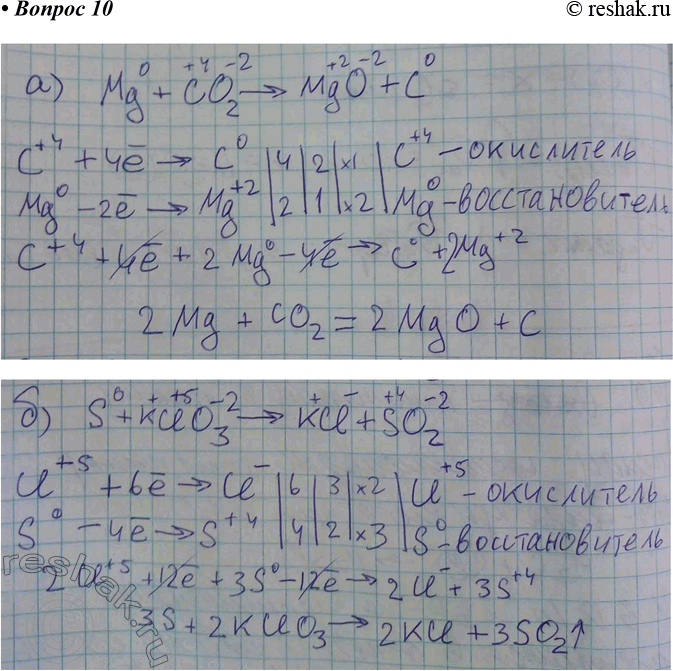 • Вопрос 10
© reshak.ru
а) Mg⁰ + C⁺⁴O₂⁻² → Mg⁺²O⁻² + C⁰
C⁺⁴ + 4ē → C⁰ | 4 | 2 | ×1 | C⁺⁴ – окислитель
Mg⁰ – 2ē → Mg⁺² | 2 | 1 | ×2 | Mg⁰ – восстановитель
C⁺⁴ + 4ē + 2Mg⁰ – 4ē → C⁰ + 2Mg⁺²
2Mg + CO₂ = 2MgO + C
б) S⁰ + K⁺Cl⁺⁵O₃⁻² → K⁺Cl⁻ + S⁺⁴O₂⁻²
Cl⁺⁵ + 6ē → Cl⁻ | 6 | 3 | ×2 | Cl⁺⁵ – окислитель
S⁰ – 4ē → S⁺⁴ | 4 | 2 | ×3 | S⁰ – восстановитель
2Cl⁺⁵ + 12ē + 3S⁰ – 12ē → 2Cl⁻ + 3S⁺⁴
3S + 2KClO₃ → 2KCl + 3SO₂↑
reshak.ru